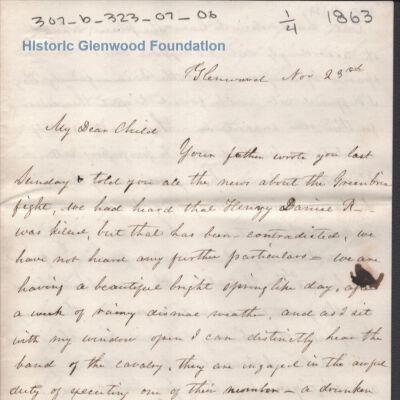 307-b-323-07-06
1/4
1863
Historic Glenwood Foundation
Glenwood Nov 23rd
My Dear Child
Your father wrote you last
Sunday & told you all the news about the Greenbrier
fight, we had heard that Henry Daniel R—
was killed, but that has been contradicted, we
have not heard any further particulars – we are
having a beautiful bright spring like day, after
a week of rainy dismal weath, and as I sit
with my window open I can distinctly hear the
band of the cavalry, they are engaged in the awful
duty of executing one of their number – a drunken